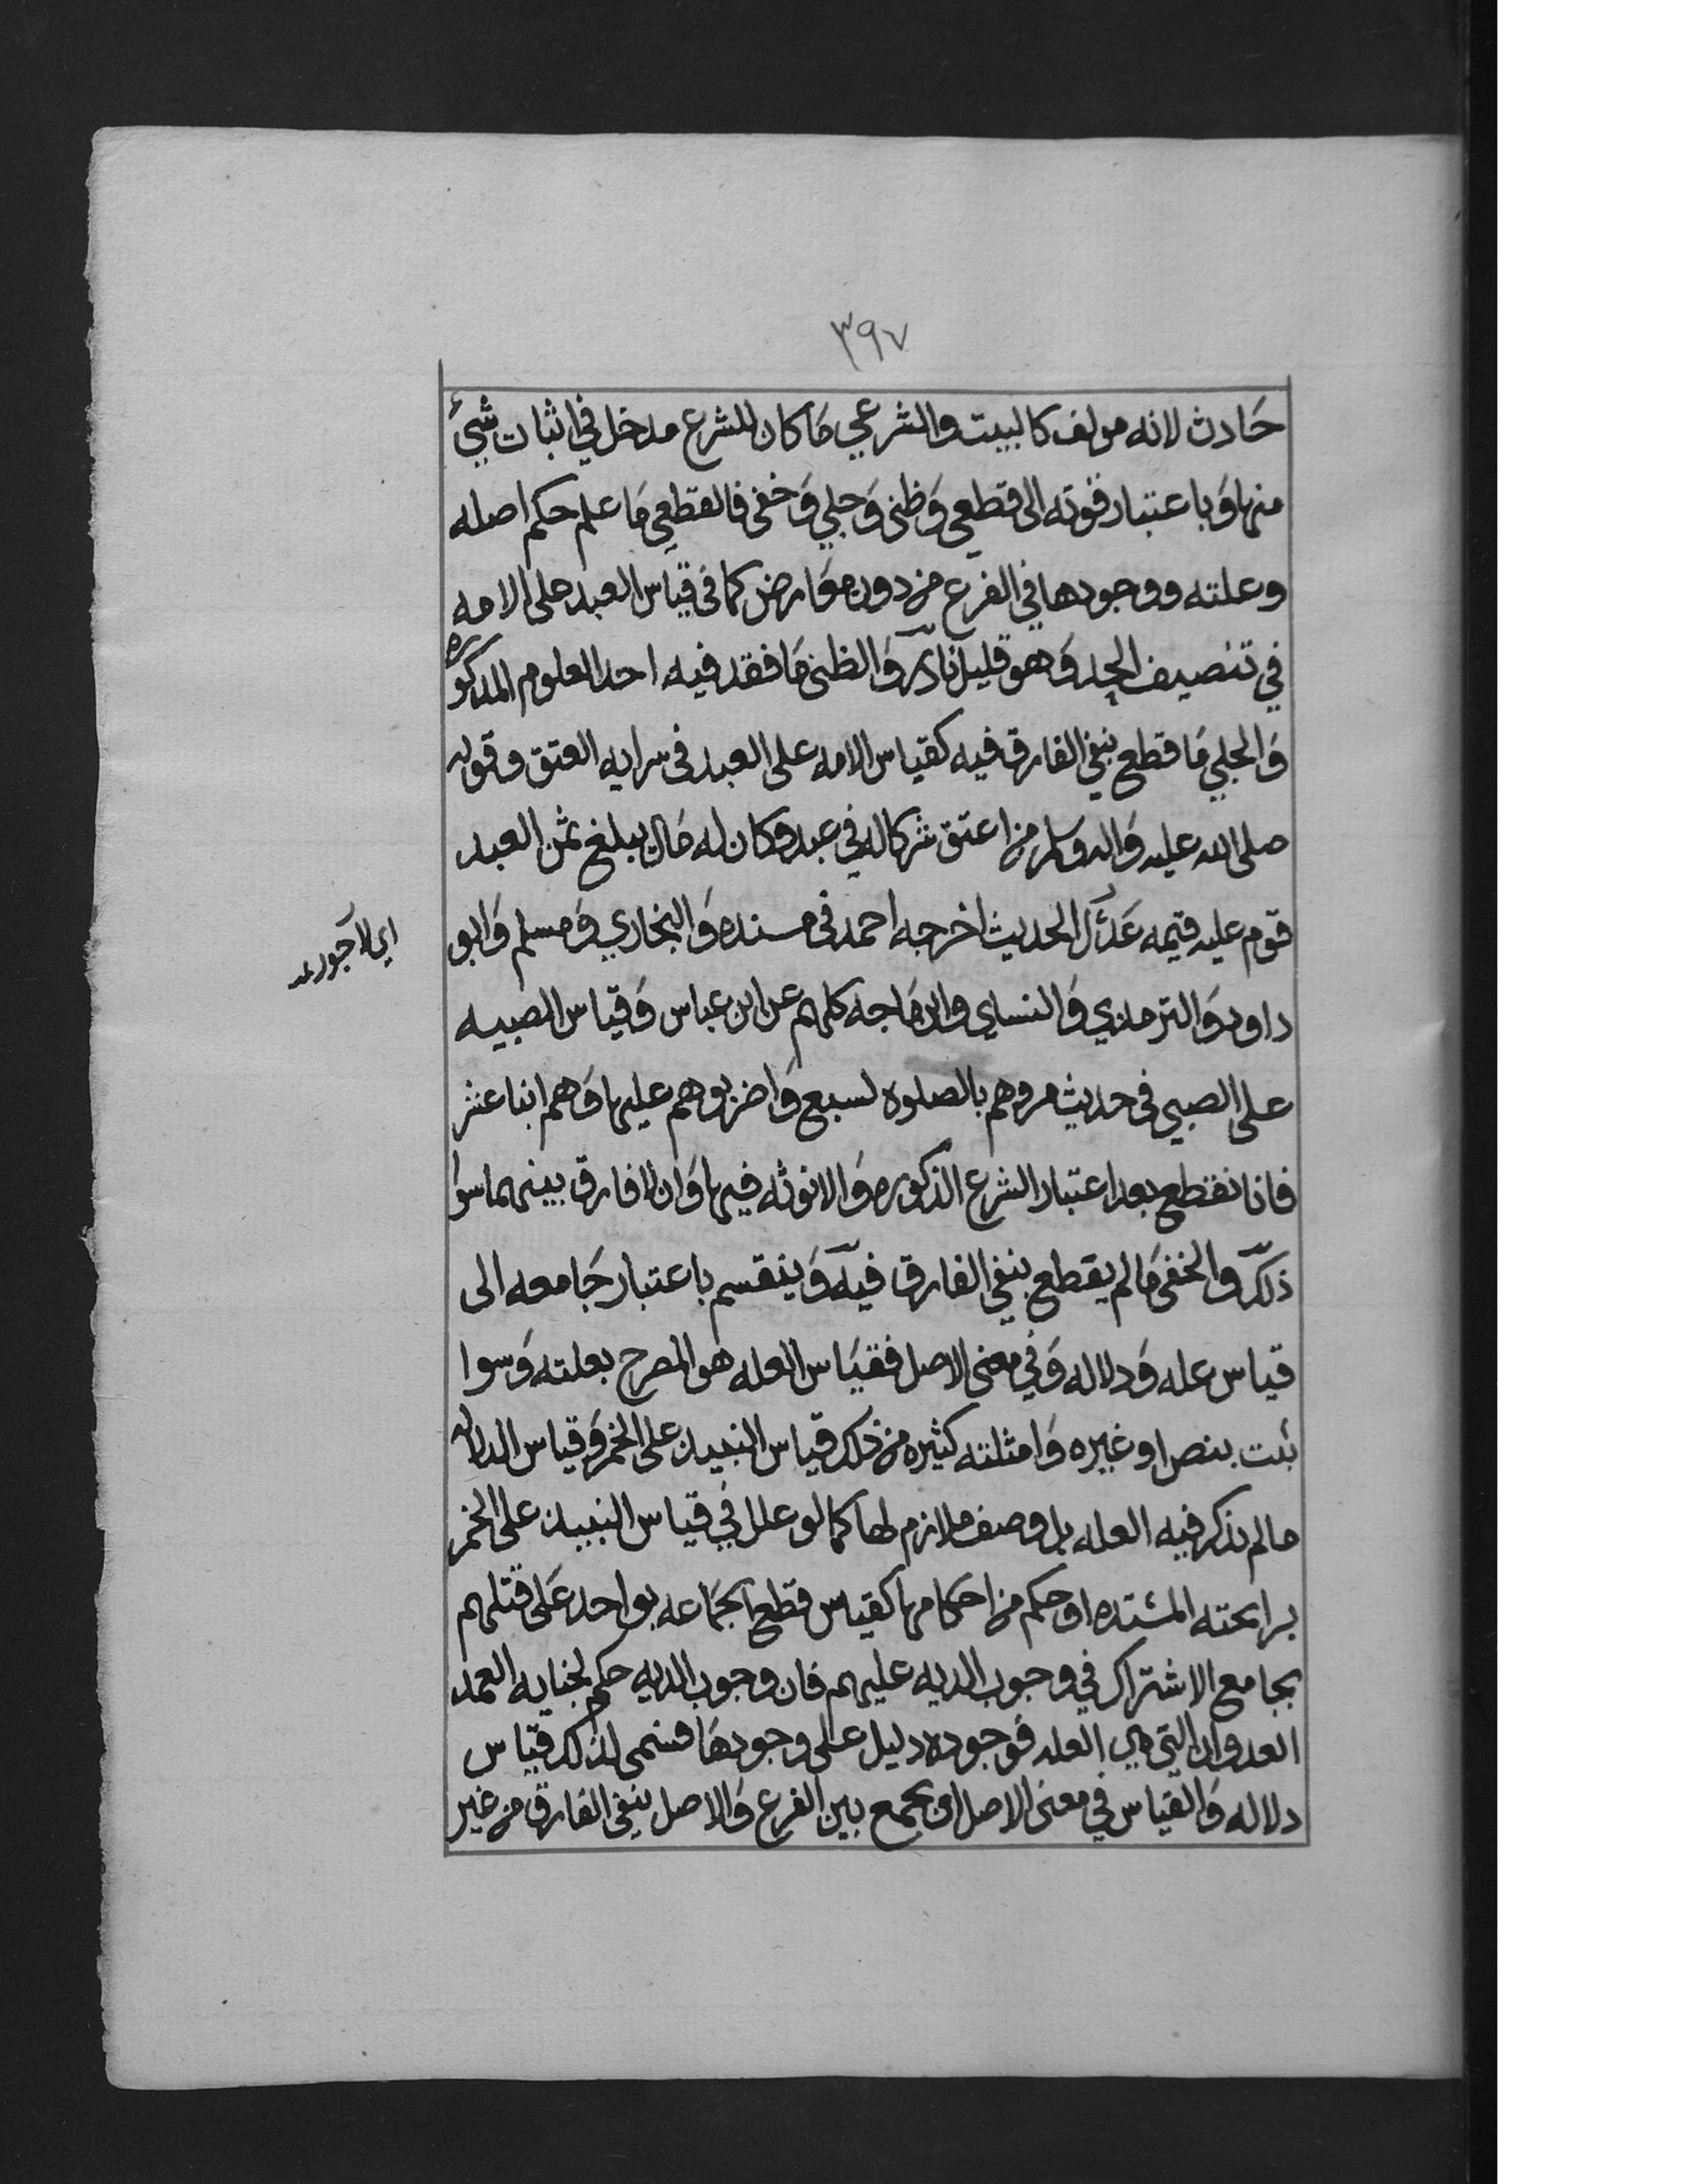 ٣٩٧
حَادث لانه مولف كالبيت والشرعي مَا كان للشرع مدخل في اثبات شيئ
منها وَباعتبار قوته الى قطعي وَظني وَجلي وَخفي فالقطعي مَا علم حكم اصله
وعلته ووجودها في الفرع من دون معَارض كما في قيَاس العبد على الامه
في تنصيف الحد وَهو قليل نادر وَالظني مَا فقد فيه احد العلوم المذكوره
وَالجلي مَا قطع بنفي الفارق فيه كقياس الامه على العبد في سرايه العتق وقوله
صلى الله عليه وَاله وسلم من اعتق شركا له في عبد وكان له مَال يبلغ ثمن العبد
قوم عليه قيمه عَدْل الحديث اخرجه احمد في مسنده وَالبخاري وَمسلم وَابو
داود وَالترمذي وَالنساي وابن مَاجه كلهم عن ابن عباس وَقياس الصبيه
على الصبي في حديث مروهم بالصلوه لسبع وَاضربوهم عليها وَهم ابنا عشر
فانا نقطع بعد اعتبار الشرع الذكوره وَالانوثه فيها وَان لا فارق بينهما سوا
ذلك وَالخفي مَا لم يقطع بنفي الفارق فيه وَينقسم باعتبار جَامعه الى
قياس عله وَدلاله وَفي معنى الاصل فقيَاس العله هو المصرح بعلته وَسوا
ثبت بنص او غيره وَامثلته كثيره من ذلك قياس النبيذ على الخمر وَقياس الدلاله
مالم يذكر فيه العله بل وصف ملازم لها كما لو علل في قياس النبيذ على الخمر
برايحته المشتده او حكم من احكامها كقياس قطع الجمَاعه بواحد عَلى قتلهم
بجامع الاشتراك في وجوب الديه عليهم فان وجوب الديه حكم لجنايه العمد
العدوان التي هي العله فوجوده دليل على وجودهَا فسمى لذلك قياس
دلاله وَالقياس في معنى الاصل ان يجمع بين الفرع وَالاصل بنفي الفارق من غير
اي لا جور